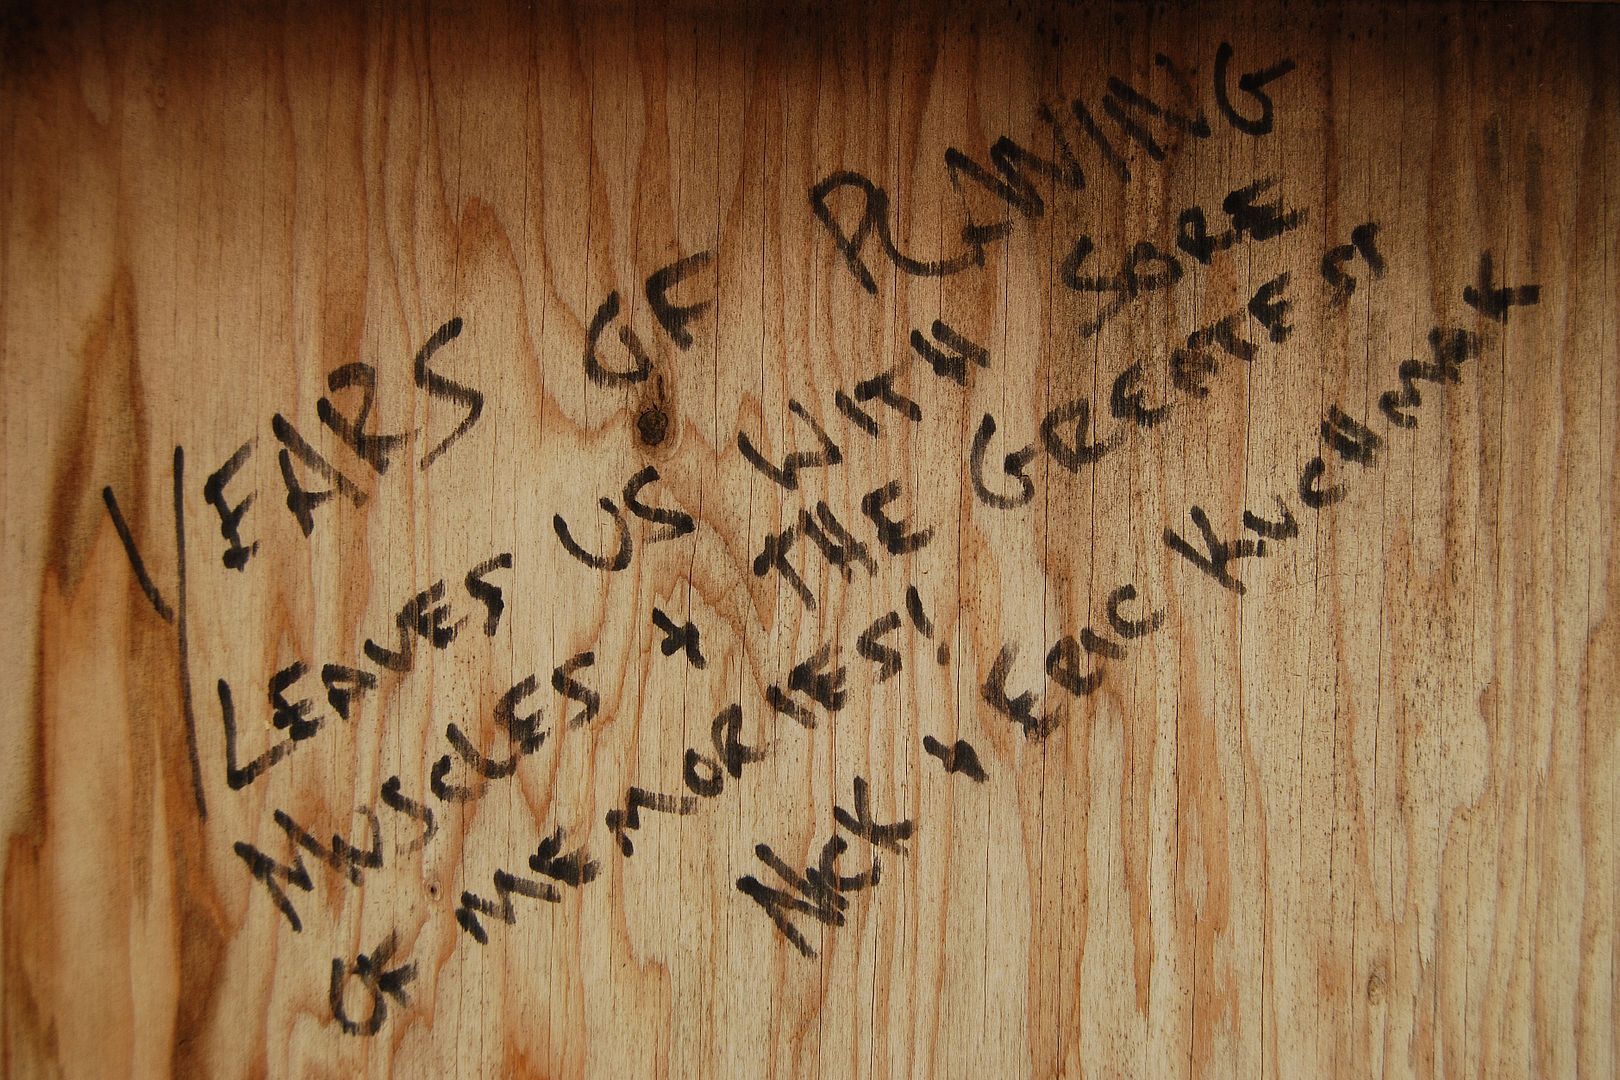 YEARS OF
LEAVES US WITH SORE
MUSCLES + THE GREATEST
OF MEMORIES!
NICK + ERIC KUCHMAK